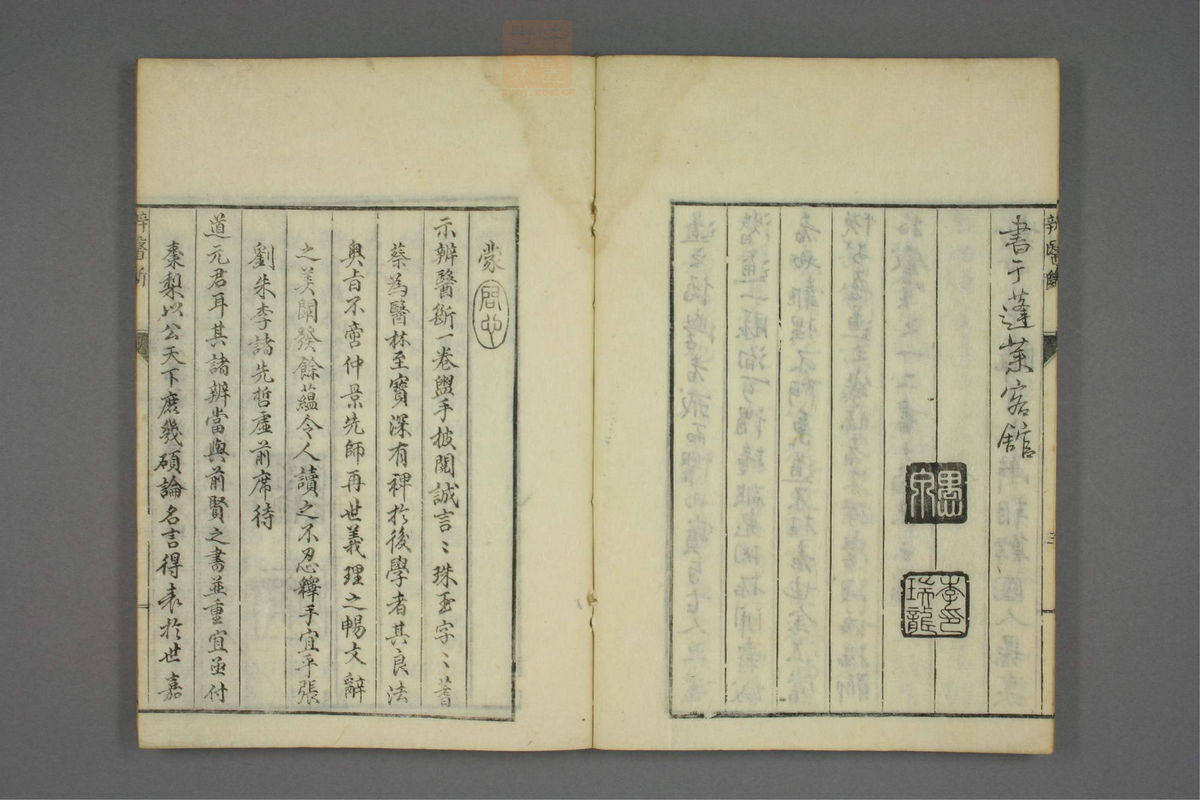 書于蓬萊客館
愚山
李印瑞龍
蒙
啟也
示辨醫斷一卷盥手披閱誠言〻珠玉字〻蓍
蔡為醫林至寶深有裨於後學者其良法
奧旨不啻仲景先師再世義理之暢文辭
之美闡發餘蘊令人讀之不忍釋手宜乎張
劉朱李諸先哲虛前席待
道元君耳其諸辨當與前賢之書並重宜亟付
棗梨以公天下庶幾碩論名言得表於世嘉
辨醫斷